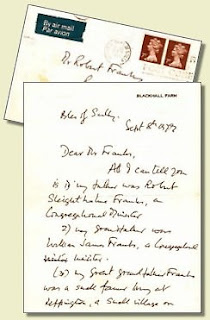 By air mail
Par avion
Dr Robert Franks
BLACKHALL FARM
Isles of Scilly
Sept 8th 1979
Dear Dr Franks,
All I can tell you
is 1) my father was Robert
Sleightholme Franks, a
Congregational Minister
2) my Grandfather was
William James Franks, a Congregational
Minister.
(3) my Great Grandfather Franks
was a small farmer living at
a small village on